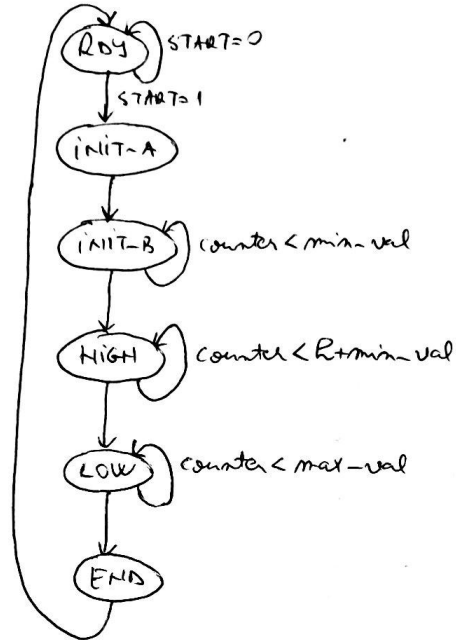 RDY
START=0
START=1
INIT-A
INIT-B
counter < min-val
HIGH
counter < h+min-val
LOW
counter < max-val
END